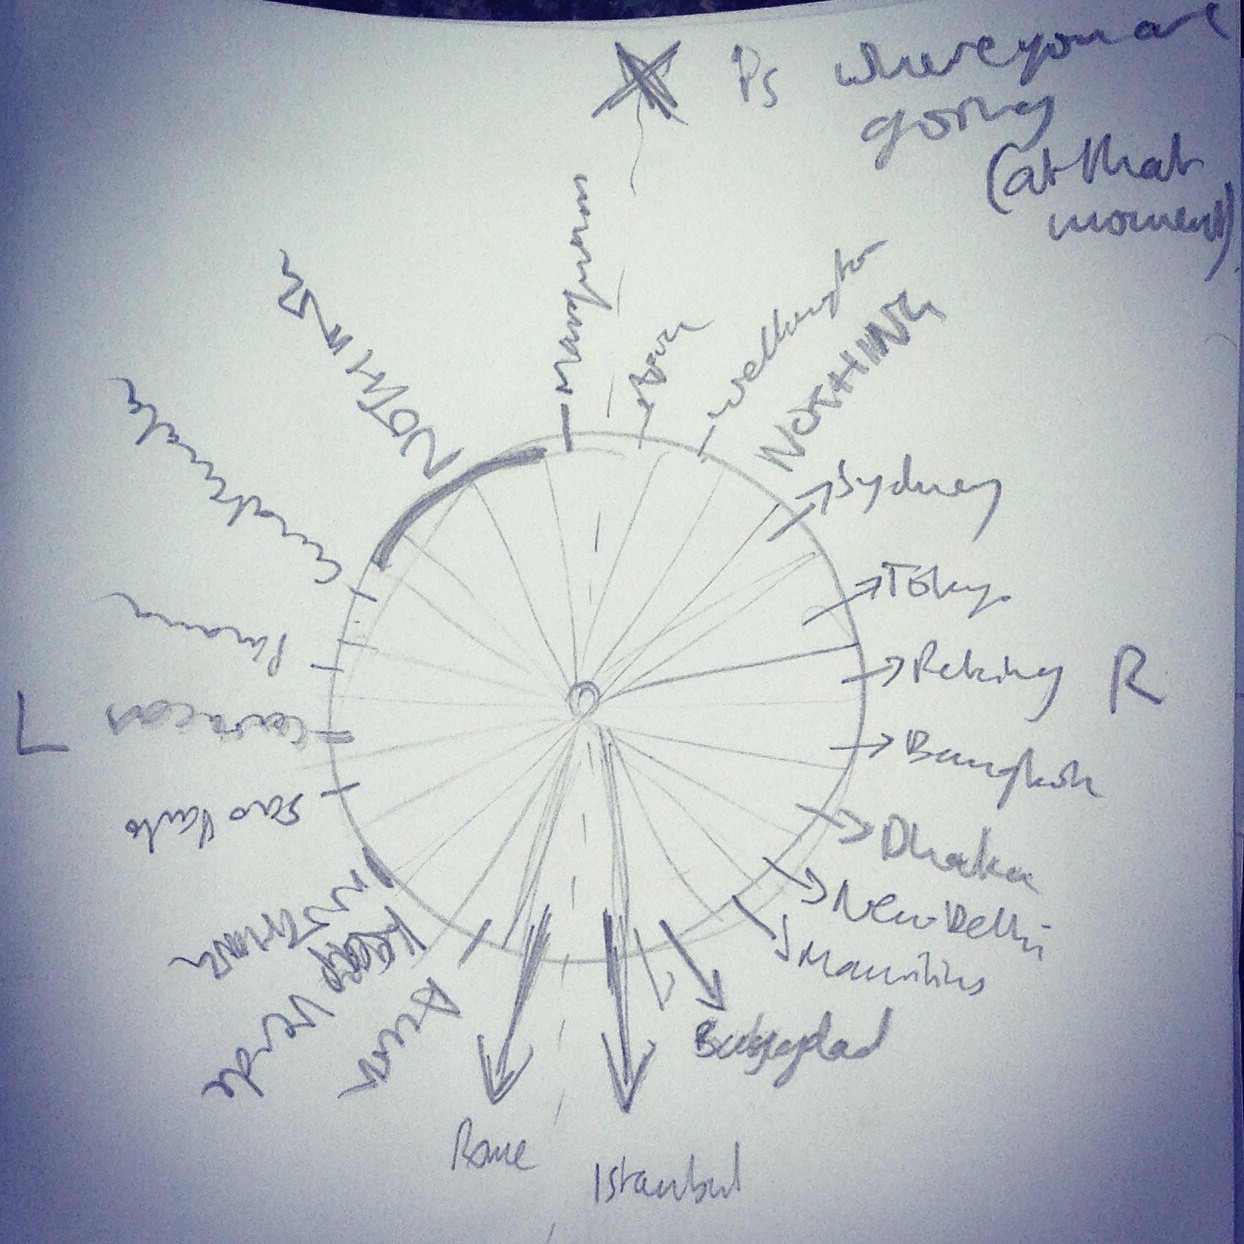 Ps where you are
going
(at that
moment)
Wellington
NOTHING
NOTHING
Sydney
Tokyo
Peking
R
Bangkok
Dhaka
New Delhi
Mauritius
Istanbul
Rome
Accra
Verde
NOTHING
Sao Paulo
L
Caracas
Panama
Guatemala